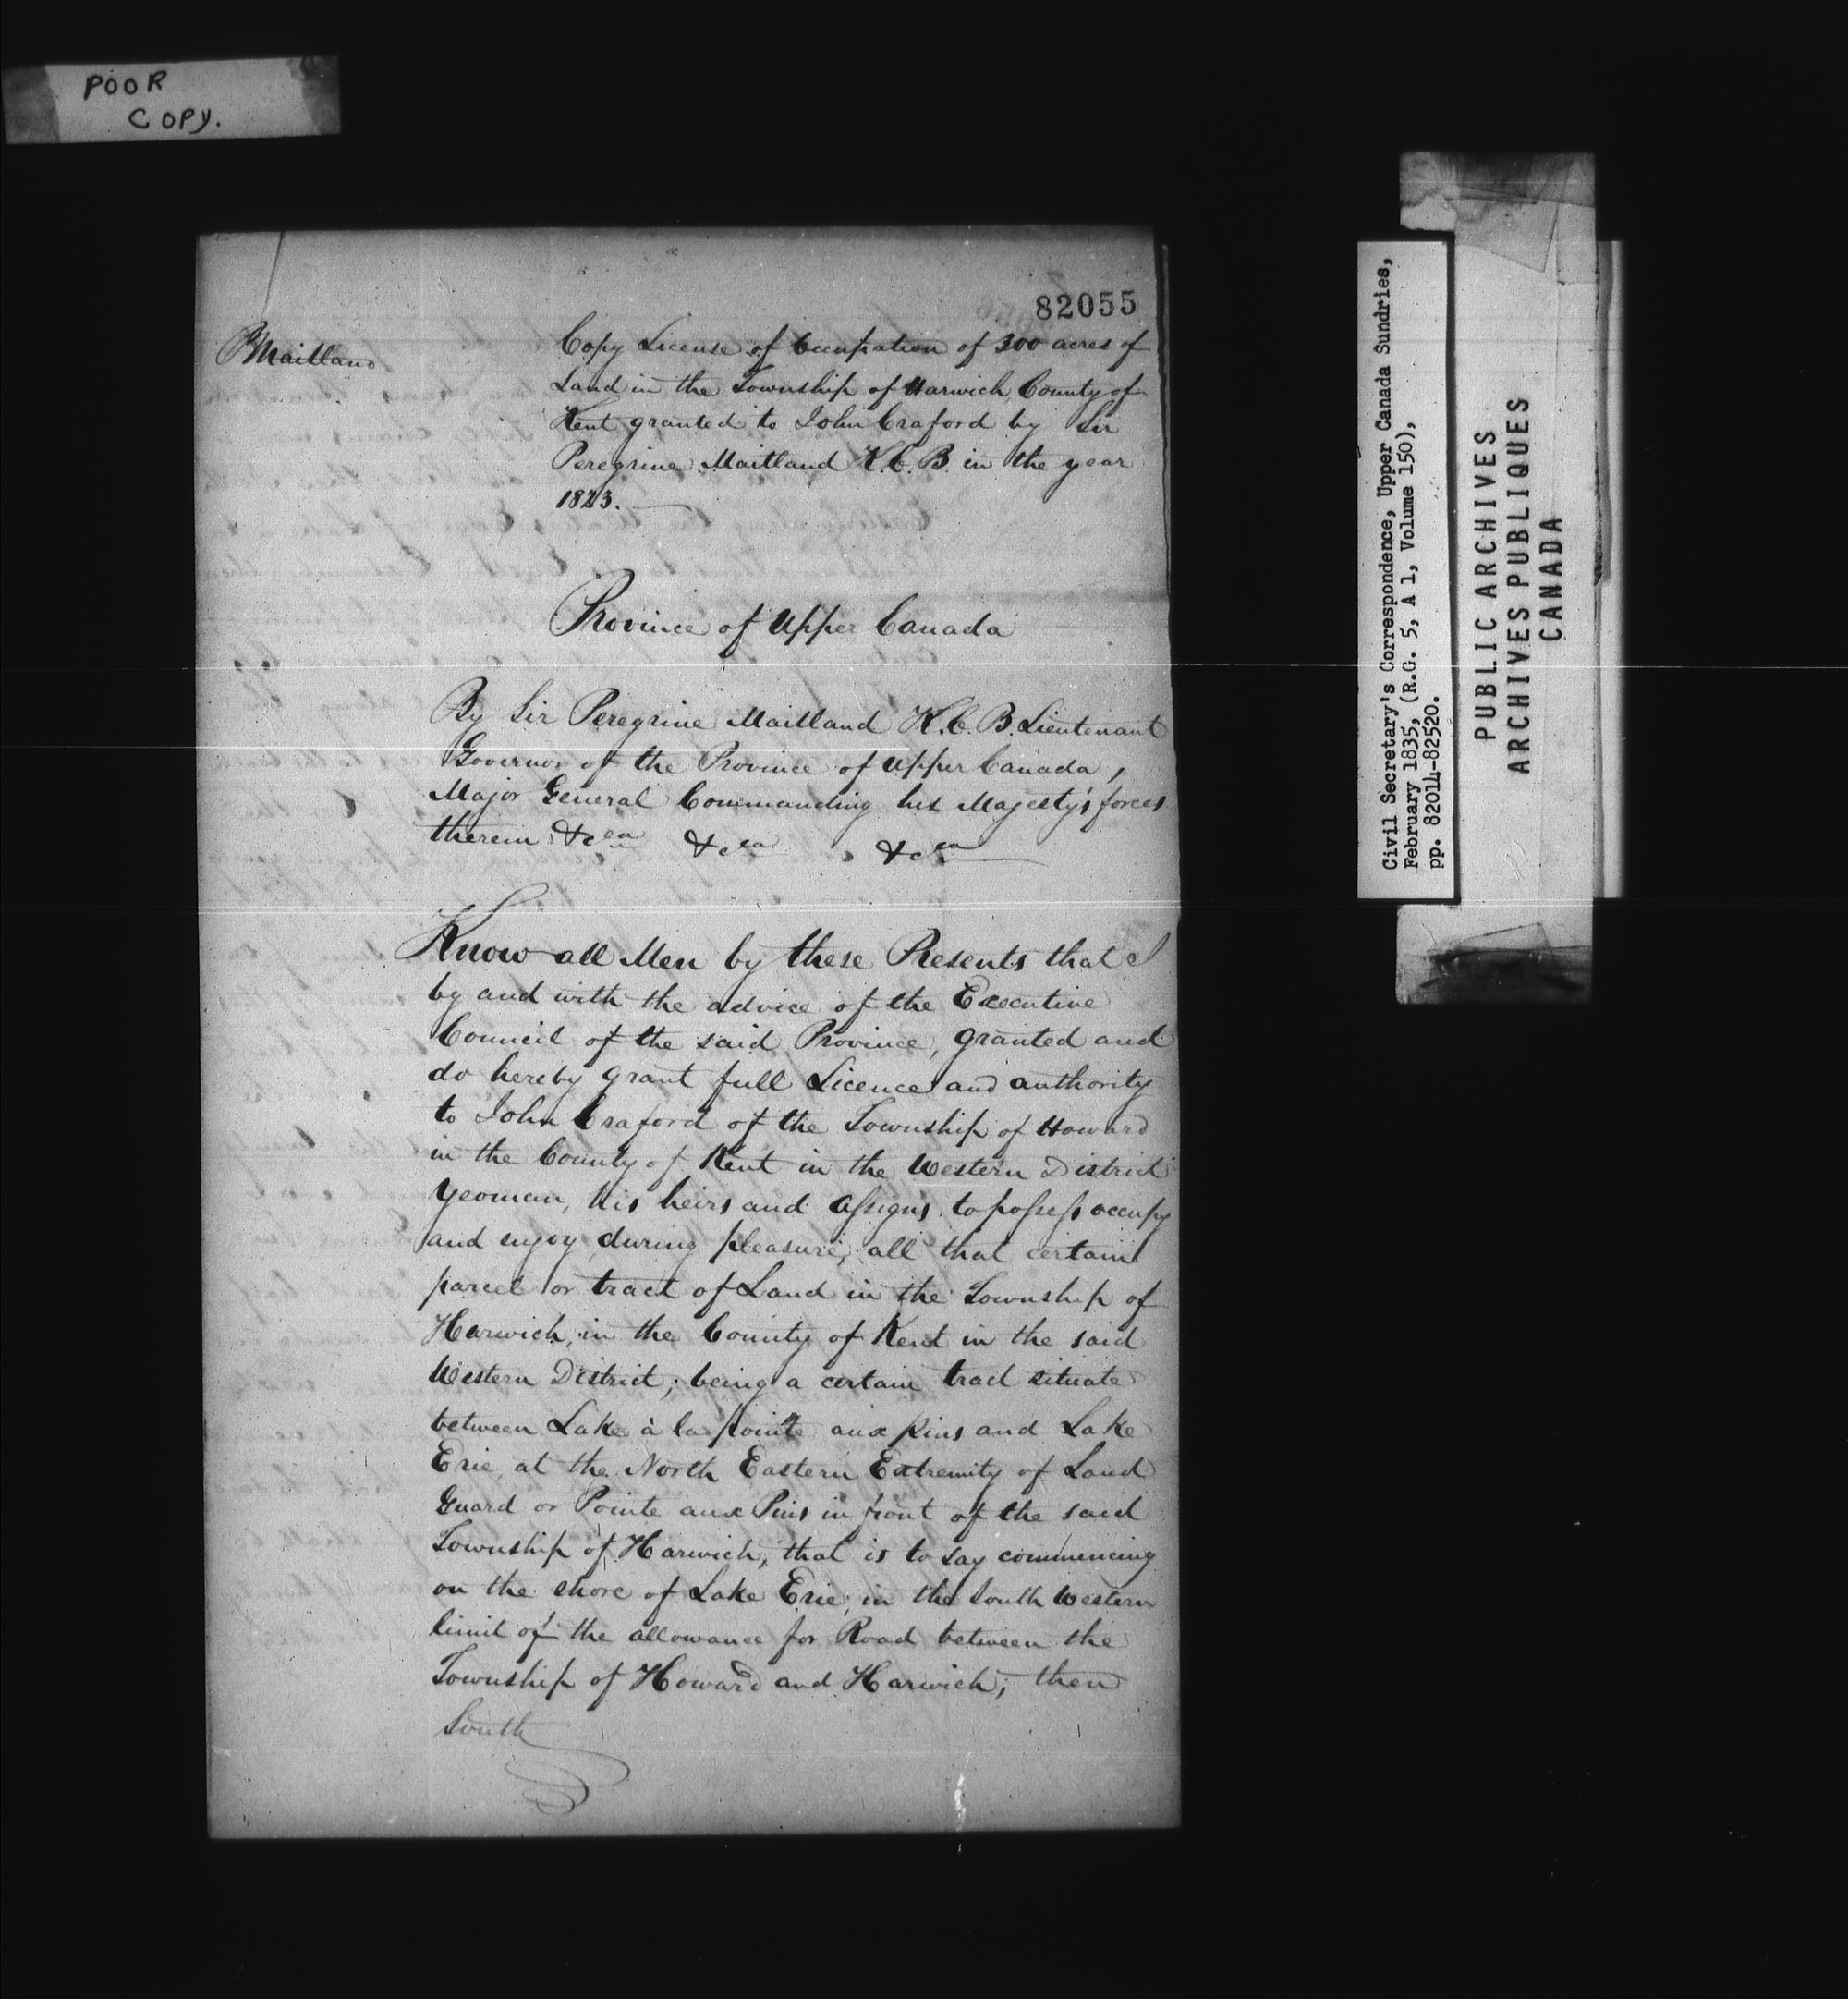 POOR
COPY.
82055
PMaitland
Copy License of Occupation of 300 acres of
Land in the Township of Harwich, County of
Kent granted to John Craford by Sir
Peregrine Maitland K.C.B. in the year
1823.
Province of Upper Canada
By Sir Peregrine Maitland K.C.B. Lieutenant
Governor of the Province of Upper Canada,
Major General Commanding his Majesty's forces
therein &c ea &c ea &c ea
Know all Men by these Presents that I
by and with the advice of the Executive
Council of the said Province, granted and
do hereby grant full Licence and authority
to John Craford of the Township of Howard
in the County of Kent in the Western District
Yeoman, his heirs and assigns to possess occupy
and enjoy during pleasure, all that certain
parcel or tract of Land in the Township of
Harwich, in the County of Kent in the said
Western District; being a certain tract situate
between Lake à la pointe aux pins and Lake
Erie, at the North Eastern Extremity of Land
Guard or Pointe aux Pins in front of the said
Township of Harwich, that is to say commencing
on the shore of Lake Erie, in the South Western
limit of the allowance for Road between the
Township of Howard and Harwich; then
South
Civil Secretary's Correspondence, Upper Canada Sundries,
February 1835, (R.G. 5, A 1, Volume 150),
pp. 82014-82520.
PUBLIC ARCHIVES
ARCHIVES PUBLIQUES
CANADA